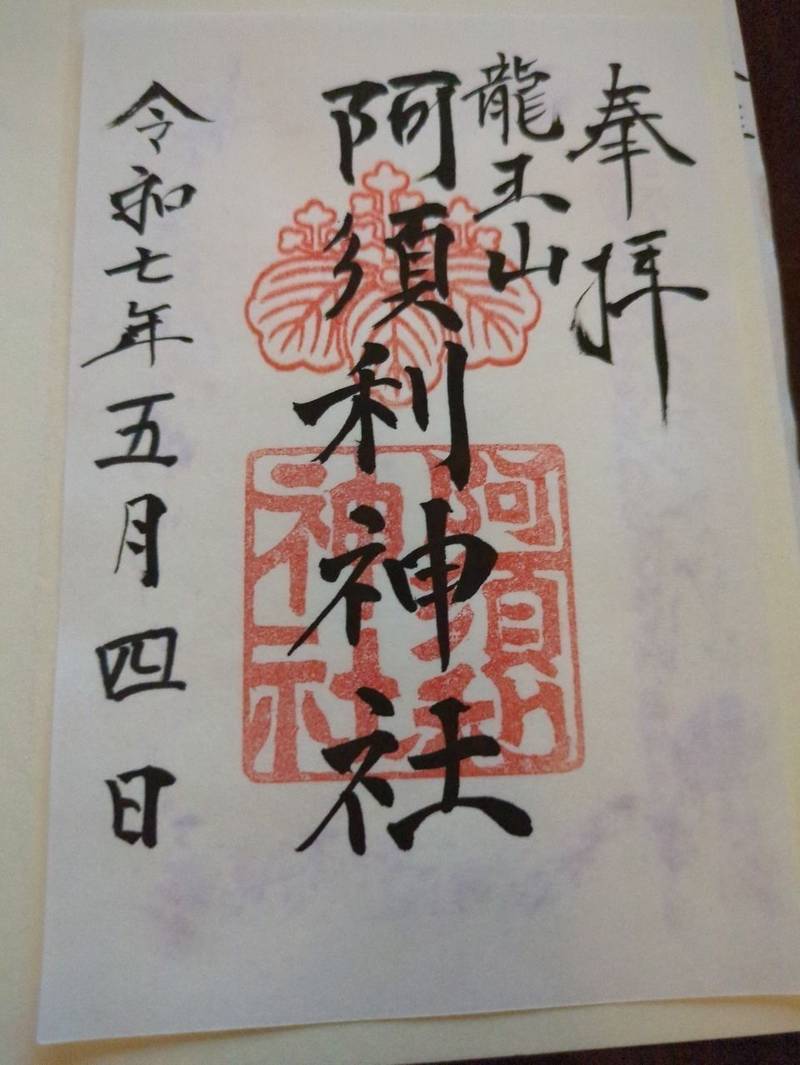 奉拝
龍王山
阿須利神社
阿須利神社
令和七年五月四日